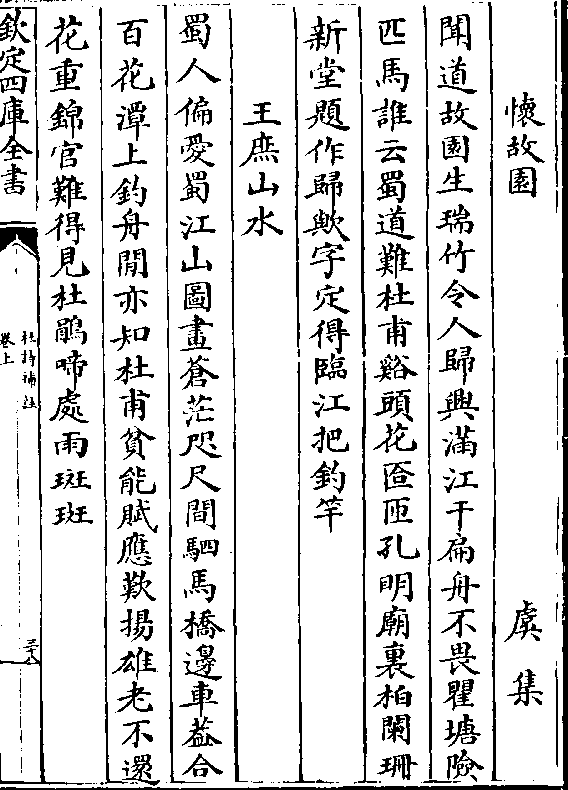 懷故園　虞集
聞道故園生瑞竹令人歸興滿江干扁舟不畏瞿塘險
匹馬誰云蜀道難杜甫谿頭花匼匝孔明廟裏柏闌珊
新堂題作歸歟字定得臨江把釣竿
王庶山水
蜀人偏愛蜀江山圖畫蒼茫咫尺間駟馬橋邊車葢合
百花潭上釣舟閒亦知杜甫貧能賦應歎揚雄老不還
花重錦官難得見杜鵑啼處雨斑斑
欽定四庫全書
卷上